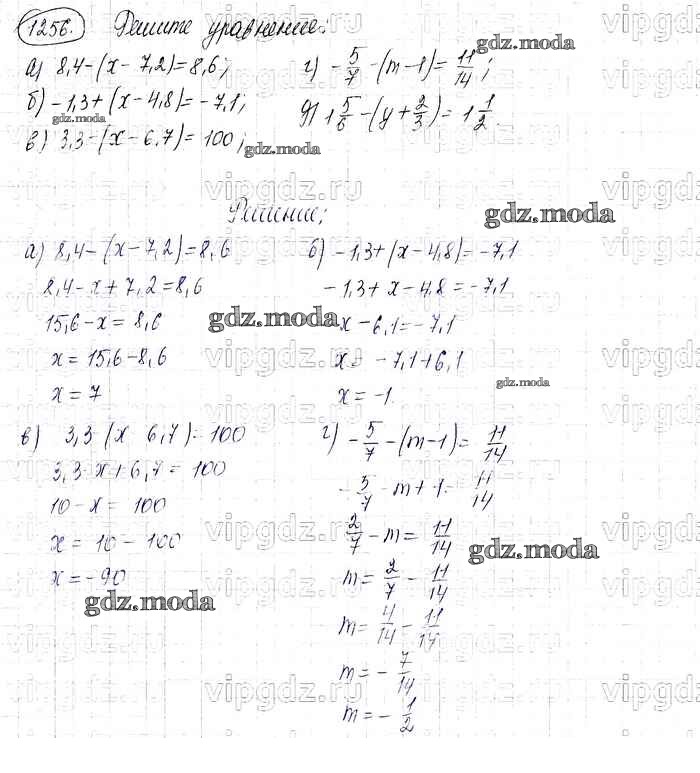 1256. Решите уравнение:
а) 8,4-(x-7,2)=8,6;
б) -1,3+(x-4,8)=-7,1;
в) 3,3-(x-6,7)=100;
г) -5/7-(m-1)=11/14;
д) 1 5/6-(y+2/3)=1 1/2.
Решение;
а) 8,4-(x-7,2)=8,6
8,4-x+7,2=8,6
15,6-x=8,6
x=15,6-8,6
x=7
б) -1,3+(x-4,8)=-7,1
-1,3+x-4,8=-7,1
x-6,1=-7,1
x=-7,1+6,1
x=-1.
в) 3,3-(x-6,7)=100
3,3-x+6,7=100
10-x=100
x=10-100
x=-90
г) -5/7-(m-1)=11/14
-5/7-m+1=11/14
2/7-m=11/14
m=2/7-11/14
m=4/14-11/14
m=-7/14
m=-1/2
gdz.moda
gdz.moda
gdz.moda
gdz.moda
gdz.moda
gdz.moda
gdz.moda
gdz.moda
vipgdz.ru